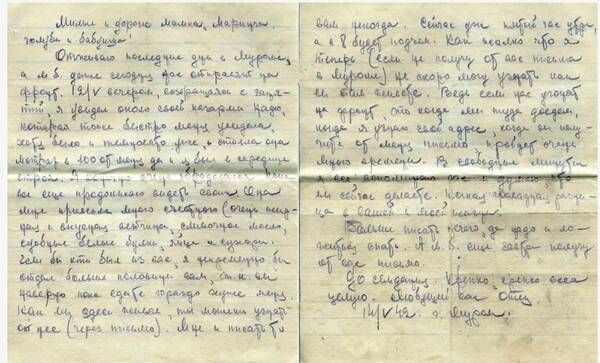 Милые и дорогие мамка, Маринча,
и бабуся!
Отживаю последние дни в Муроме,
а м.б. даже сегодня нас отправят на
фронт. 12/V вечером, возвращаясь с заня-
тий, я увидел около своей казармы Надю,
которая тоже быстро меня увидела,
хотя было и темновато уже, и стояла она
метрах в 100 от меня да и я был в середине
строя. Я
все еще продолжаю видеть своих. Она
мне привезла много съестного (очень
и вкусная ветчина, сливочное масло,
сдобные белые булки, яйца и сухари.
Чем бы кто был из вас, я непременно бы
отдал больше половины вам, т.к. вы
наверно пока едите гораздо хуже меня
Как мы здесь живем, ты можешь узнать
от нее (через письмо). Мне и писать то
вам некогда. Сейчас уже пятый час утра,
а в 8 будет подъем. Как жалко что я
теперь (если не получу от вас письма
в Муроме) не скоро могу узнать как
вы там живете. Ведь если нас угонят
на фронт, то когда мы туда доедем,
когда я узнаю свой адрес, когда вы полу-
чите от меня письмо, пройдет очень
много времени. В свободные минутки
я все вспоминаю вас и думаю что
вы сейчас делаете. Какая громадная разни-
ца в вашей и моей жизни.
Больше писать нечего, да надо и ло-
житься спать. А м.б. еще завтра получу
от вас письмо.
До свидания. Крепко, крепко всех
целую. Любящий вас Отец
14/V 42. г. Муром.